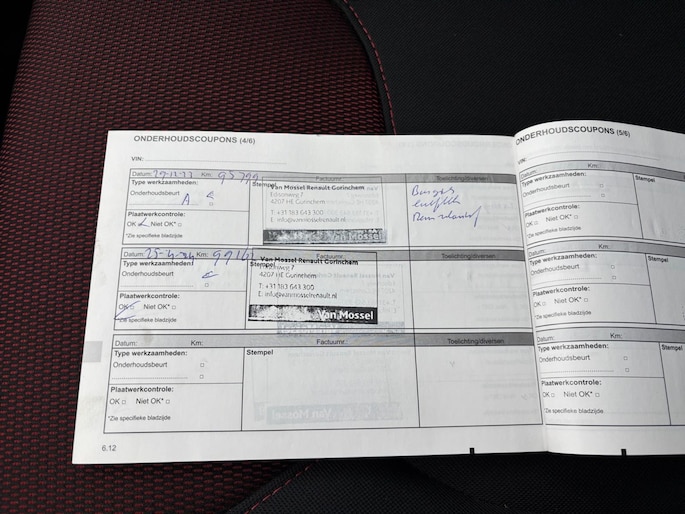 ONDERHOUDSCOUPONS (4/6)
VIN:
Datum: Km:
Factuurnr.:
Toelichting/diversen
Type werkzaamheden:
Onderhoudsbeurt A
Plaatwerkcontrole:
OK Niet OK*
*Zie specifieke bladzijde
Stempel
Van Mossel Renault Gorinchem
Edisonweg 7
4207 HE Gorinchem
T: +31 183 643 300
E: info@vanmosselrenault.nl
Van Mossel
Datum: Km:
Factuurnr.:
Toelichting/diversen
Type werkzaamheden:
Onderhoudsbeurt
Plaatwerkcontrole:
OK Niet OK*
*Zie specifieke bladzijde
Stempel
Van Mossel Renault Gorinchem
Edisonweg 7
4207 HE Gorinchem
T: +31 183 643 300
E: info@vanmosselrenault.nl
Van Mossel
Datum: Km:
Factuurnr.:
Toelichting/diversen
Type werkzaamheden:
Onderhoudsbeurt
Plaatwerkcontrole:
OK Niet OK*
*Zie specifieke bladzijde
Stempel
6.12
ONDERHOUDSCOUPONS (5/6)
VIN:
Datum: Km:
Type werkzaamheden:
Onderhoudsbeurt
Plaatwerkcontrole:
OK Niet OK*
*Zie specifieke bladzijde
Stempel
Datum: Km:
Type werkzaamheden:
Onderhoudsbeurt
Plaatwerkcontrole:
OK Niet OK*
*Zie specifieke bladzijde
Stempel
Datum: Km:
Type werkzaamheden:
Onderhoudsbeurt
Plaatwerkcontrole:
OK Niet OK*
*Zie specifieke bladzijde
Stempel